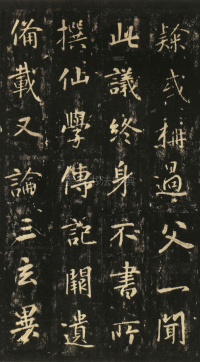 隸或稱過父一聞
此議終身不書所
撰仙學傳記闕遺
備載又論三玄異